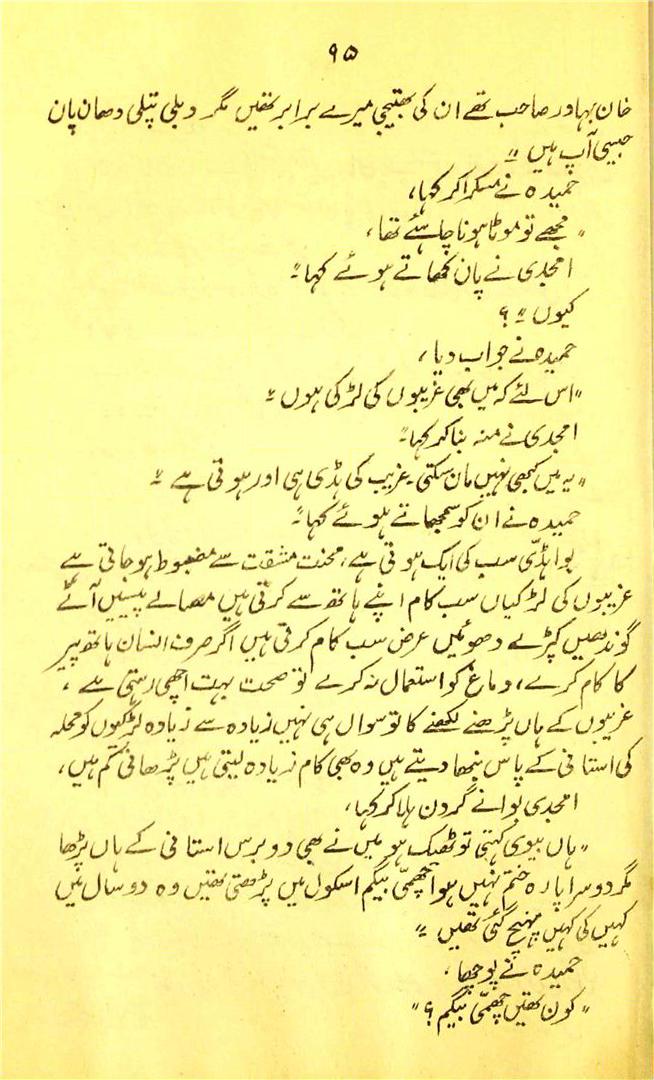 ۹۵
خان بہادر صاحب تھے ان کی بھتیجی میرے برابر تھیں مگر دبلی پتلی دھان پان
جیسی آپ ہیں "
حمیدہ نے مسکرا کر کہا،
" مجھے تو موٹا ہونا چاہئے تھا،
امجدی نے پان کھاتے ہوئے کہا "
کیوں " ؟
حمیدہ نے جواب دیا،
"اس لئے کہ میں بھی غریبوں کی لڑکی ہوں "
امجدی نے منہ بنا کر کہا "
" یہ میں کبھی نہیں مان سکتی۔ غریب کی ہڈی ہی اور ہوتی ہے "
حمیدہ نے ان کو سمجھاتے ہوئے کہا "
بوا ہڈی سب کی ایک ہوتی ہے، محنت مشقت سے مضبوط ہو جاتی ہے
غریبوں کی لڑکیاں سب کام اپنے ہاتھ سے کرتی ہیں مصالے پیسیں آٹے
گوندھیں کپڑے دھوئیں غرض سب کام کرتی ہیں اگر صرف انسان ہاتھ پیر
کا کام کرے، دماغ کو استعمال نہ کرے تو صحت بہت اچھی رہتی ہے ،
غریبوں کے ہاں پڑھنے لکھنے کا تو سوال ہی نہیں زیادہ سے زیادہ لڑکیوں کو محلہ
کی استانی کے پاس بٹھا دیتے ہیں وہ بھی کام زیادہ لیتی ہیں پڑھاتی کم ہیں،
امجدی بوا نے گردن ہلا کر کہا،
" ہاں بیوی کہتی تو ٹھیک ہو میں نے بھی دو برس استانی کے ہاں پڑھا
مگر دوسرا پارہ ختم نہیں ہوا چھمّی بیگم اسکول میں پڑھتی تھیں وہ دو سال میں
کہیں کی کہیں پہنچ گئی تھیں "
حمیدہ نے پوچھا،
" کون تھیں چھمّی بیگم ؟ "